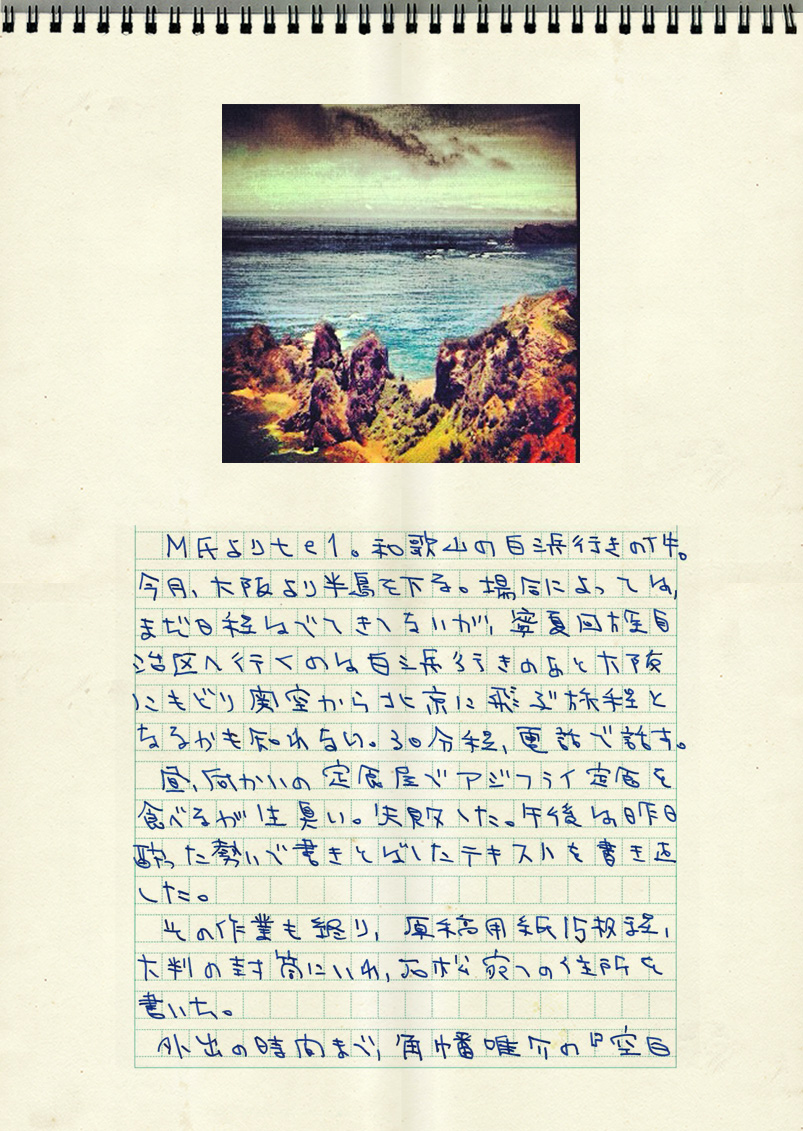 M氏よりtel。和歌山の白浜行きの件。
今月、大阪より半島を下る。場合によっては、
まだ日程はでてきてないが、寧夏回族自
治区へ行くのは白浜行きのあと大阪
にもどり関空から北京に飛ぶ旅程と
なるかも知れない。30分程、電話で話す。
昼、向かいの定食屋でアジフライ定食を
食べるが生臭い。失敗した。午後は昨日
酔った勢いで書きとばしたテキストを書き直
した。
その作業も終り、原稿用紙15枚程、
大判の封筒にいれ、石松宛への住所を
書いた。
外出の時間まで、角幡唯介の『空白